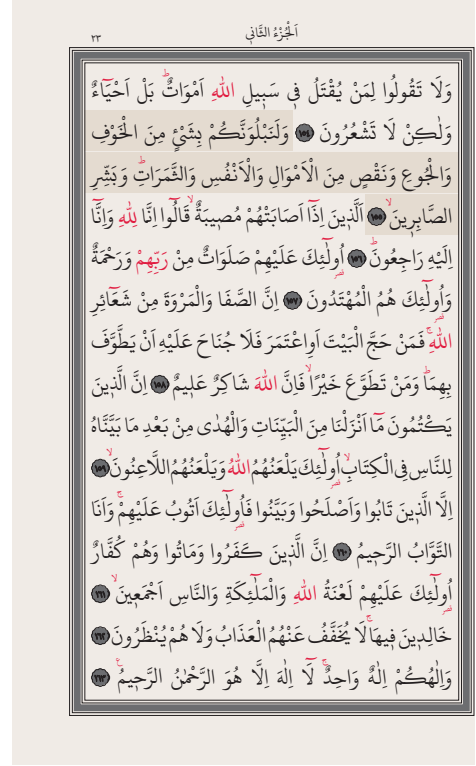 اَلْجُزْءُ الثَّانٖي
٢٣
وَلَا تَقُولُوا لِمَنْ يُقْتَلُ فٖي سَبٖيلِ اللّٰهِ اَمْوَاتٌؕ بَلْ اَحْيَٓاءٌ
وَلٰكِنْ لَا تَشْعُرُونَ ﴿١٥٤﴾ وَلَنَبْلُوَنَّكُمْ بِشَيْءٍ مِنَ الْخَوْفِ
وَالْجُوعِ وَنَقْصٍ مِنَ الْاَمْوَالِ وَالْاَنْفُسِ وَالثَّمَرَاتِؕ وَبَشِّرِ
الصَّابِرٖينَۙ ﴿١٥٥﴾ اَلَّذٖينَ اِذَٓا اَصَابَتْهُمْ مُصٖيبَةٌۙ قَالُٓوا اِنَّا لِلّٰهِ وَاِنَّٓا
اِلَيْهِ رَاجِعُونَؕ ﴿١٥٦﴾ اُولٰٓئِكَ عَلَيْهِمْ صَلَوَاتٌ مِنْ رَبِّهِمْ وَرَحْمَةٌ
وَاُولٰٓئِكَ هُمُ الْمُهْتَدُونَ ﴿١٥٧﴾ اِنَّ الصَّفَا وَالْمَرْوَةَ مِنْ شَعَٓائِرِ
اللّٰهِۚ فَمَنْ حَجَّ الْبَيْتَ اَوِ اعْتَمَرَ فَلَا جُنَاحَ عَلَيْهِ اَنْ يَطَّوَّفَ
بِهِمَاؕ وَمَنْ تَطَوَّعَ خَيْرًاۙ فَاِنَّ اللّٰهَ شَاكِرٌ عَلٖيمٌ ﴿١٥٨﴾ اِنَّ الَّذٖينَ
يَكْتُمُونَ مَٓا اَنْزَلْنَا مِنَ الْبَيِّنَاتِ وَالْهُدٰى مِنْ بَعْدِ مَا بَيَّنَّاهُ
لِلنَّاسِ فِي الْكِتَابِۙ اُولٰٓئِكَ يَلْعَنُهُمُ اللّٰهُ وَيَلْعَنُهُمُ اللَّاعِنُونَۙ ﴿١٥٩﴾
اِلَّا الَّذٖينَ تَابُوا وَاَصْلَحُوا وَبَيَّنُوا فَاُولٰٓئِكَ اَتُوبُ عَلَيْهِمْۚ وَاَنَا
التَّوَّابُ الرَّحٖيمُ ﴿١٦٠﴾ اِنَّ الَّذٖينَ كَفَرُوا وَمَاتُوا وَهُمْ كُفَّارٌ
اُولٰٓئِكَ عَلَيْهِمْ لَعْنَةُ اللّٰهِ وَالْمَلٰٓئِكَةِ وَالنَّاسِ اَجْمَعٖينَۙ ﴿١٦١﴾
خَالِدٖينَ فٖيهَاۚ لَا يُخَفَّفُ عَنْهُمُ الْعَذَابُ وَلَا هُمْ يُنْظَرُونَ ﴿١٦٢﴾
وَاِلٰهُكُمْ اِلٰهٌ وَاحِدٌۚ لَٓا اِلٰهَ اِلَّا هُوَ الرَّحْمٰنُ الرَّحٖيمُ۟ ﴿١٦٣﴾